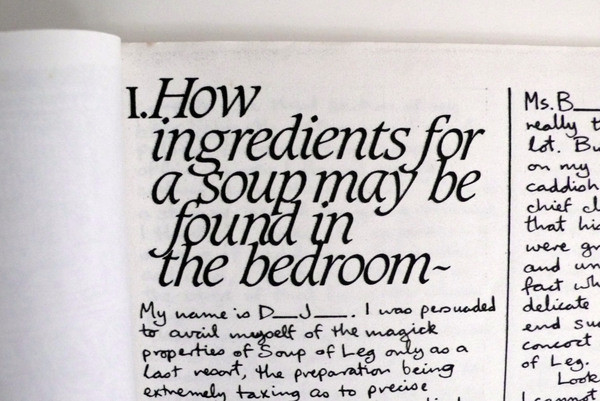 I. How
ingredients for
a soup may be
found in
the bedroom~
My name is D__J___. I was persuaded
to avail myself of the magick
properties of Soup of Leg only as a
last resort, the preparation being
extremely taking as to precise
Ms. B
really
lot. Bu
on my
caddish
chief cl
that his
were gr
and un
fact wh
delicate
end suc
concoct
of Leg.
Look
I cannot